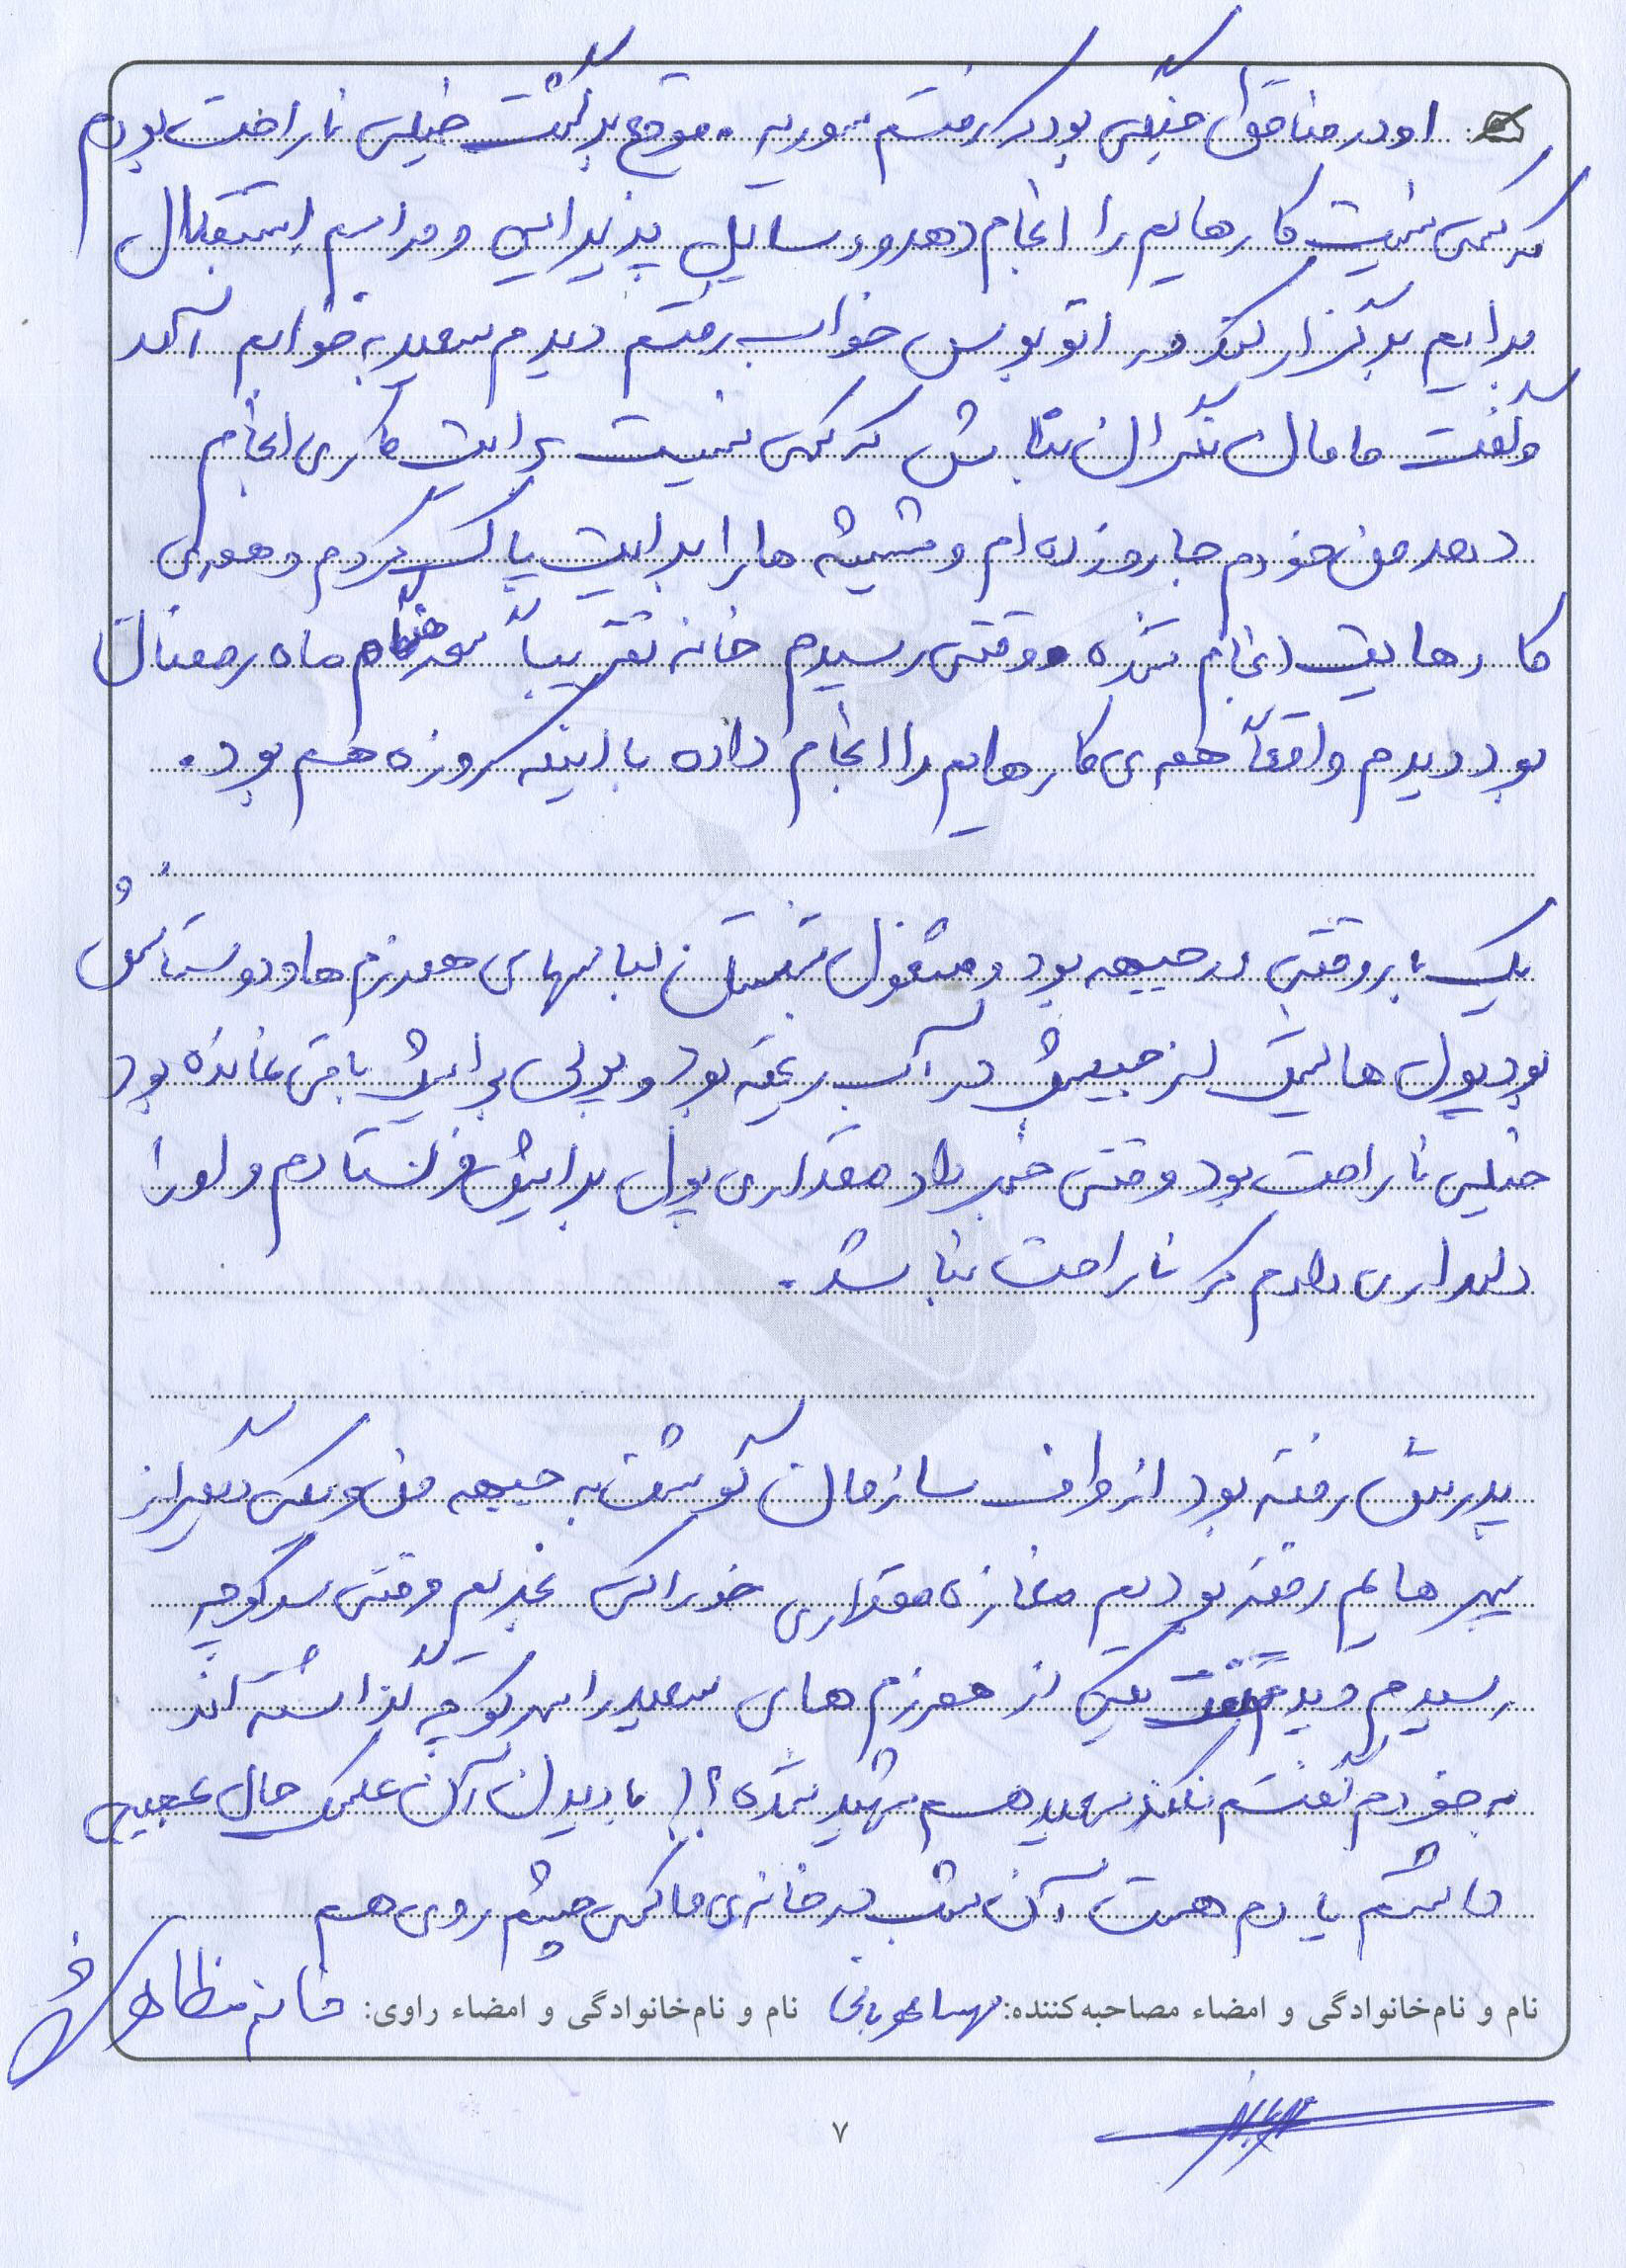 او در مناطق جنگی بود که رفتم سوریه موقع برگشت خیلی ناراحت بودم
که کسی نیست کارهایم را انجام دهد و وسایل پذیرایی و مراسم استقبال
برایم برگزار کند در اتوبوس خواب رفتم دیدم سعید به خوابم آمد
و گفت مامان نگران نباش که کسی نیست برایت کاری انجام
دهد من خودم جارو زده ام و شیشه ها را برایت پاک کردم و همه ی
کارهایت انجام شده وقتی رسیدم خانه تقریباً هنگام ماه رمضان
بود دیدم واقعاً همه ی کارهایم را انجام داده با اینکه روزه هم بود.
یک بار وقتی در جبهه بود و مشغول شستن لباسهای همرزم ها و دوستانش
بود پول هایش از جیبش در آب ریخته بود و پولی برایش باقی نمانده بود
خیلی ناراحت بود وقتی خبر داد مقداری پول برایش فرستادم و او را
دلداری دادم که ناراحت نباشد.
پدرش رفته بود از طرف سازمان گوشت به جبهه من و یکی دیگر از
پسرهایم رفته بودیم مغازه مقداری خوراکی بخریم وقتی سر کوچه
رسیدم دیدم یکی از همرزم های سعید را سر کوچه گذاشته اند
به خودم گفتم نکند سعید هم شهید شده؟! با دیدن آن عکس حال عجیبی
داشتم یادم هست آن شب در خانه ی ما کسی چشم روی هم
نام و نام‌خانوادگی و امضاء مصاحبه‌کننده: نام و نام‌خانوادگی و امضاء راوی: خانم مظاهری
۷